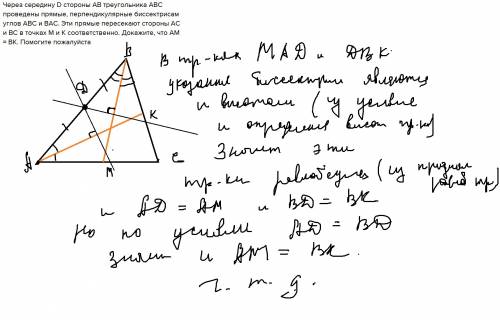 Через середину D стороны AB треугольника ABC
проведены прямые, перпендикулярные биссектрисам
углов ABC и BAC. Эти прямые пересекают стороны AC
и BC в точках M и K соответственно. Докажите, что AM
= BK. Помогите пожалуйста
B
D
K
A
M
C
В тр-ках MAD и DBK
указание биссектрис являются
и высотами (из условие
и определения высот тр-ка)
Значит эти
тр-ки равнобедр (из признак
равноб тр)
и AD = AM и BD = BK
но по условии AD = BD
значит и AM = BK.
ч. т. д.